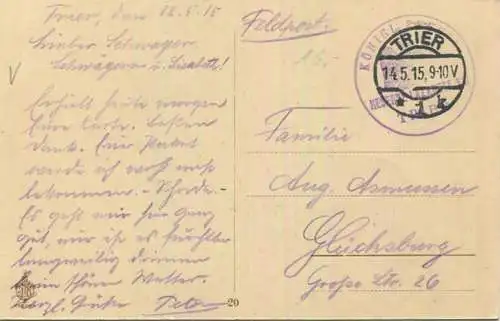 Trier, den 12.5.15
Lieber Schwager
Schwägerin u. Lisabeth!
Erhielt heute morgen
Eure Karte. Besten
Dank. Euer Paket
werde ich noch
bekommen. - Schade. -
Es geht mir sehr ganz
gut, nur ist es furchtbar
langweilig drinnen
beim schönen Wetter.
Herzl. Grüße Peter
Feldpost.
15.-
KÖNIGL.
TRIER
14.5.15, 9-10V
* 1 k
TRIER
Familie
Aug. Asmussen
Glücksburg
Große Str. 26
20